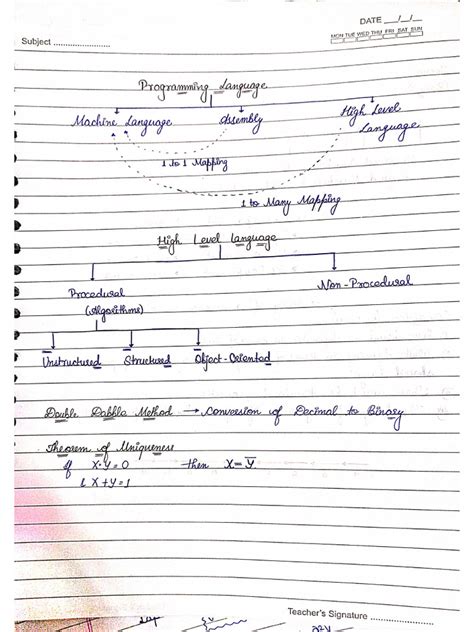 DATE __/__/__
MON TUE WED THU FRI SAT SUN
Subject ....................
Programming Language
Machine Language
Assembly
High Level
Language
1 to 1 Mapping
1 to Many Mapping
High Level Language
Procedural
(Algorithms)
Non-Procedural
Unstructured
Structured
Object-Oriented
Double Dabble Method → Conversion of Decimal to Binary
Theorem of Uniqueness
If X·Y=0 then X=Y̅
& X+Y=1
Teacher's Signature ....................